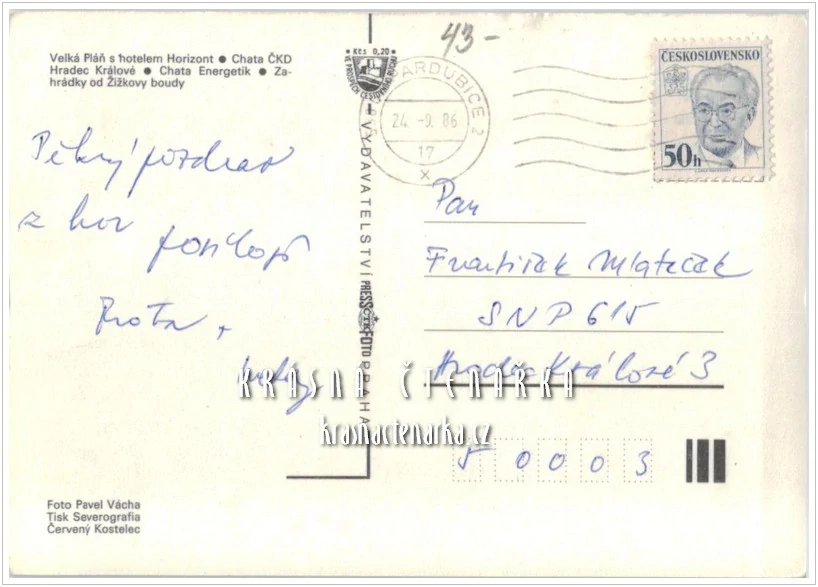 43-
Velká Pláň s hotelem Horizont ● Chata ČKD
Hradec Králové ● Chata Energetik ● Za-
hrádky od Žižkovy boudy
Kčs 0,20
VE PROSPĚCH CESTOVNÍHO RUCHU
PARDUBICE 2
24.-9.86
17
x
ČESKOSLOVENSKO
50h
Pěkný pozdrav
z hor posílají
VYDAVATELSTVÍ PRESSFOTO PRAHA
ČTK
Pan
František Mlateček
SNP 615
Hradec Králové 3
50003
KRÁSNÁ ČTENÁŘKA
krasnactenarka.cz
Foto Pavel Vácha
Tisk Severografia
Červený Kostelec